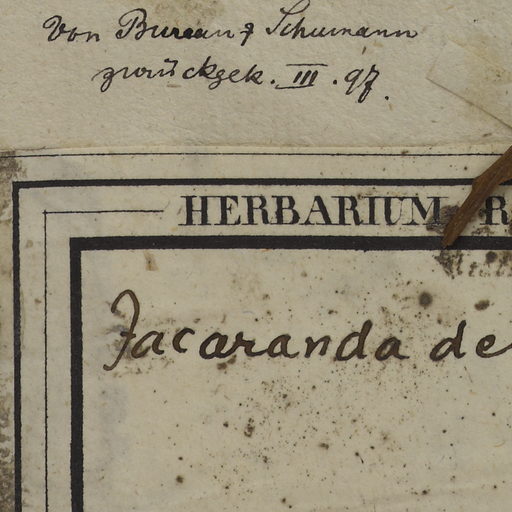 Von Bureau & Schumann
zurückgek. III. 97.
HERBARIUM R
Jacaranda de